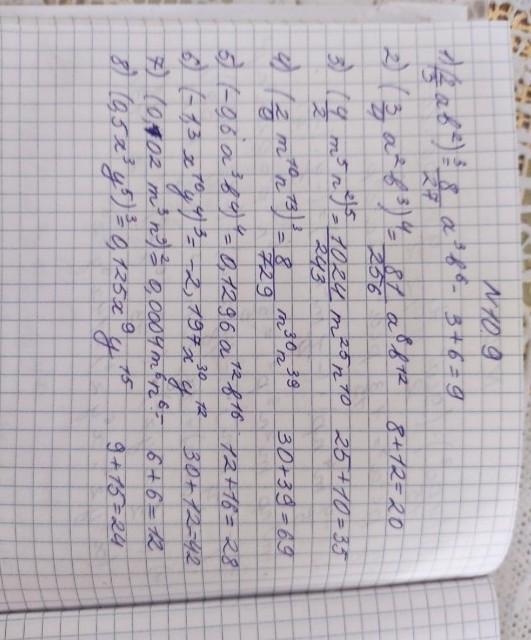 №109
1) (2/3 ab²)³ = 8/27 a³b⁶ - 3+6=9
2) (3/4 a²b³)⁴ = 81/256 a⁸b¹² 8+12=20
3) (4/2 m⁵n²)⁵ = 1024/243 m²⁵n¹⁰ 25+10=35
4) (2/9 m¹⁰n¹³)³ = 8/729 m³⁰n³⁹ 30+39=69
5) (-0,6a³b⁴)⁴ = 0,1296a¹²b¹⁶ 12+16=28
6) (-1,3 x¹⁰y⁴)³ = -2,197x³⁰y¹² 30+12=42
7) (0,02 m³n³)² = 0,0004m⁶n⁶ = 6+6=12
8) (0,5x³y⁵)³ = 0,125x⁹y¹⁵ 9+15=24